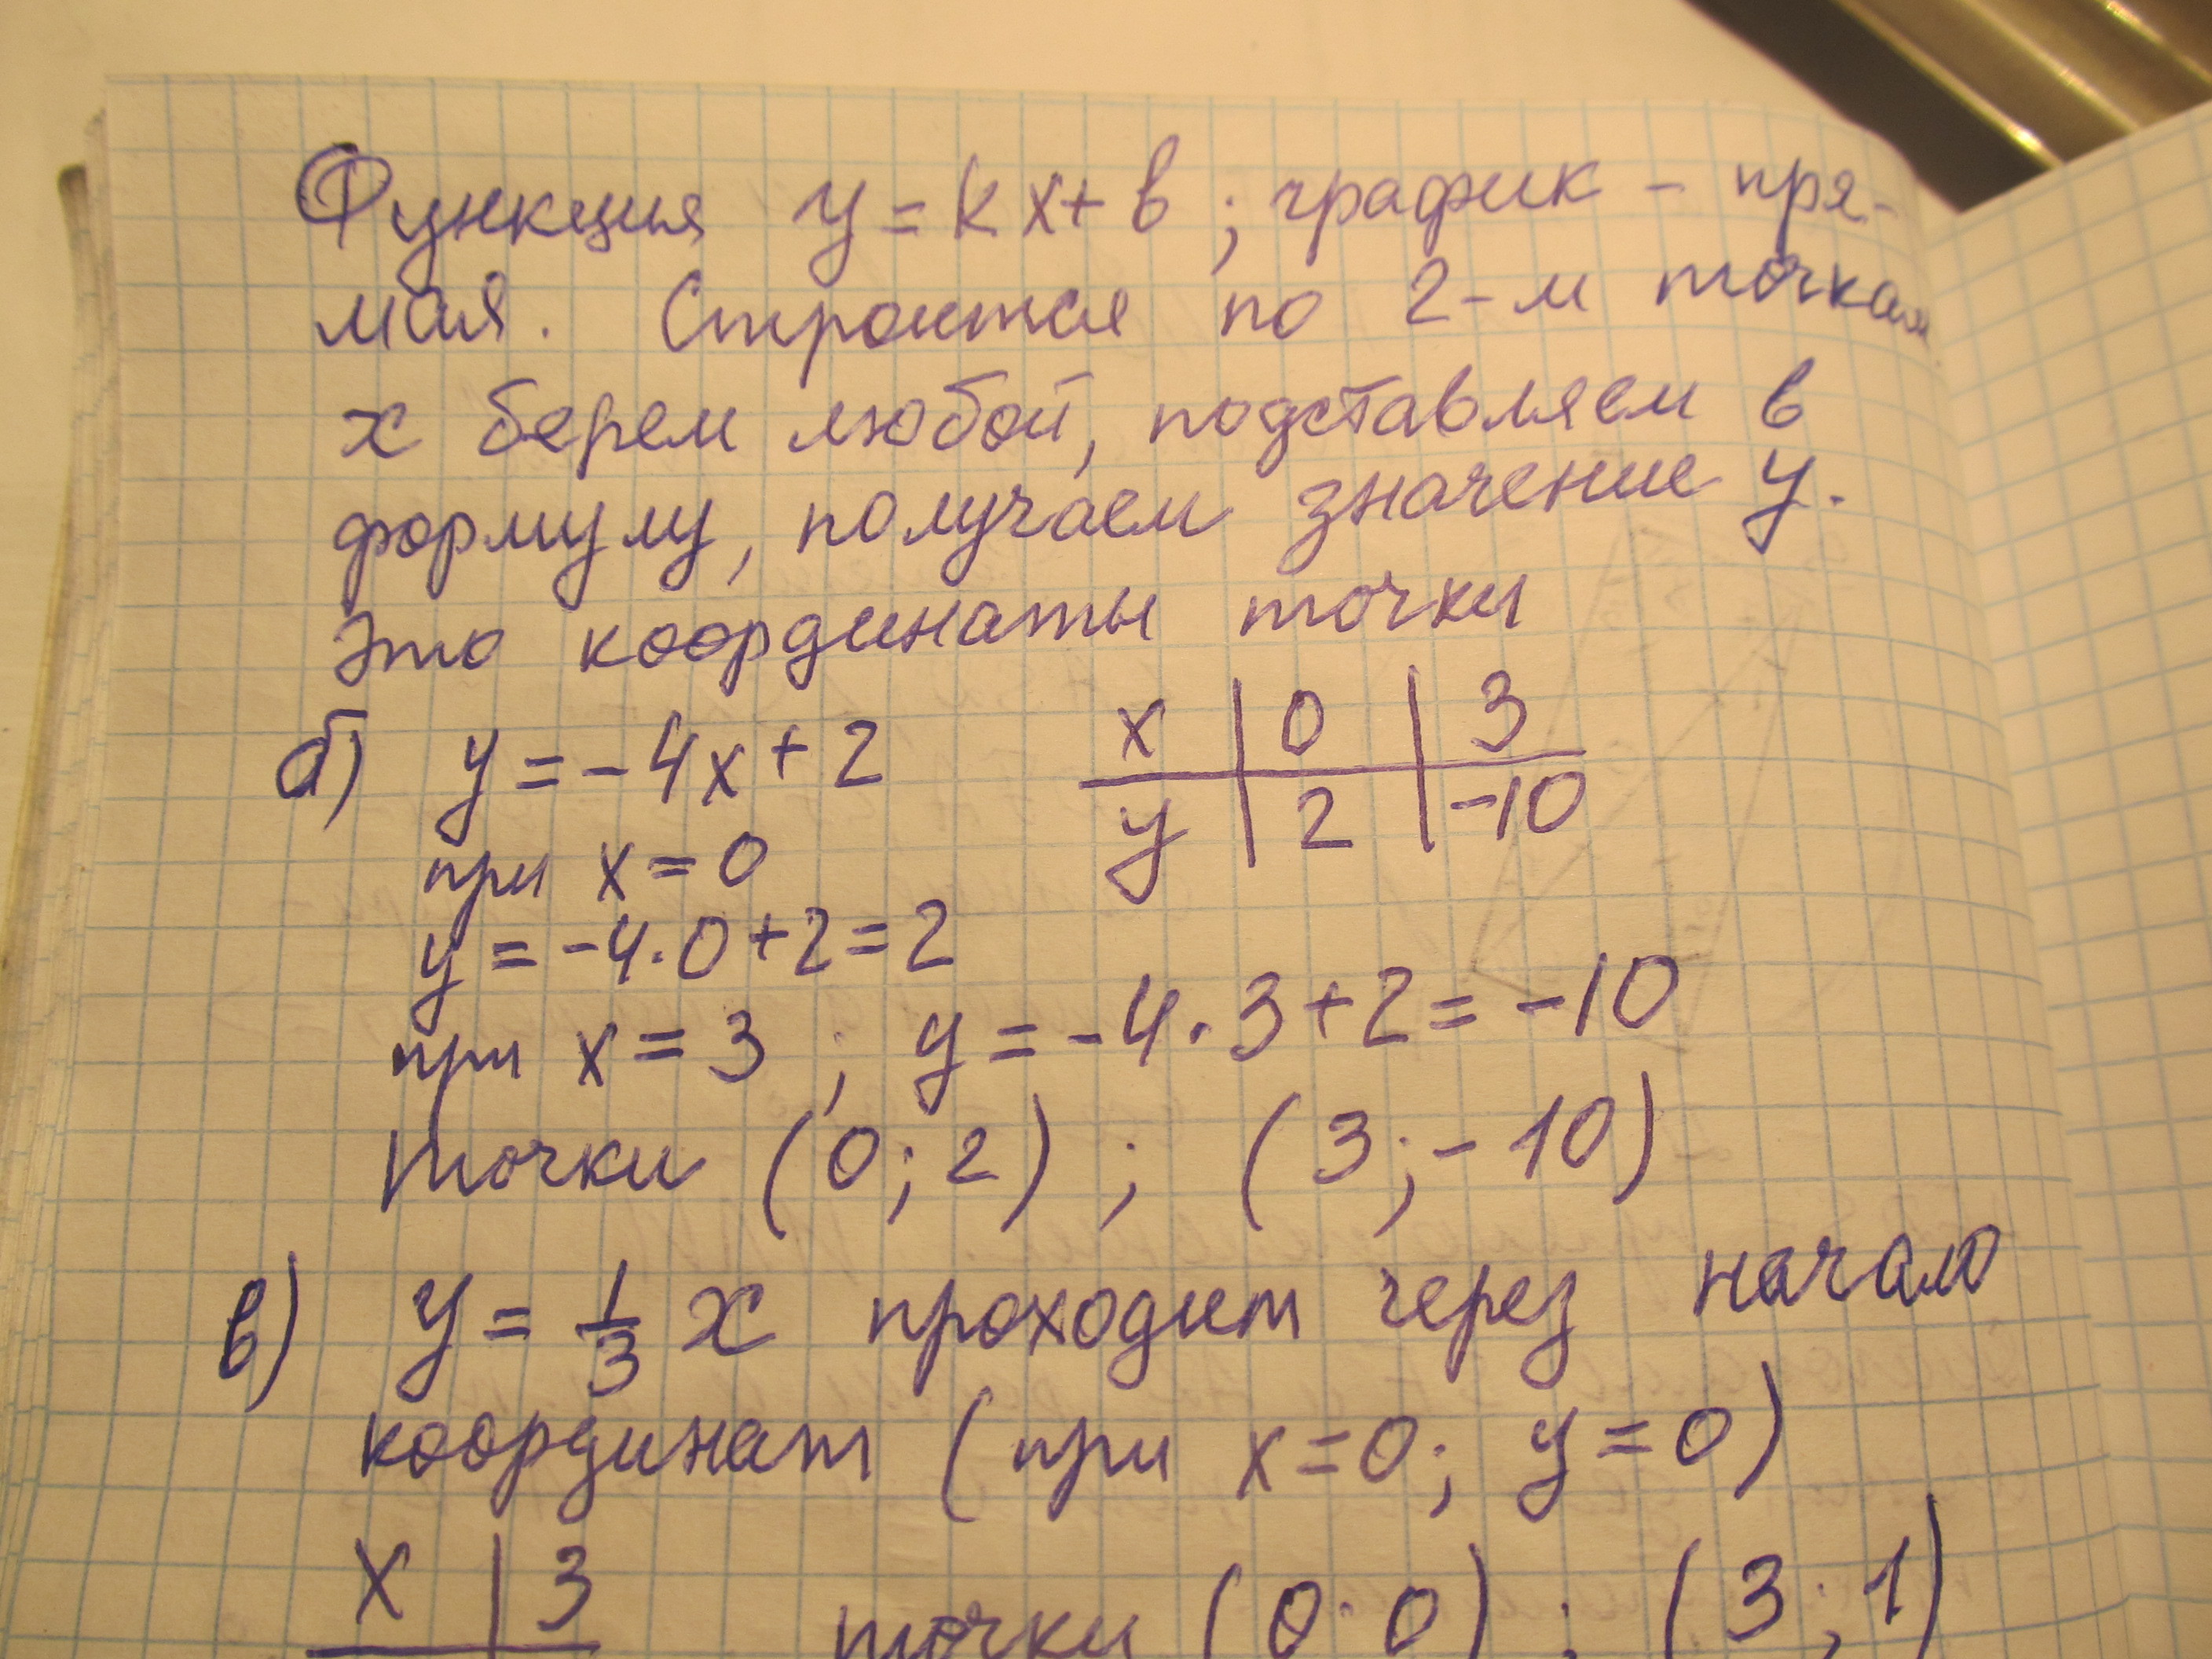 Функция y = kx + b ; график - пря-
мая. Строится по 2-м точкам
x берем любой, подставляем в
формулу, получаем значение y.
Это координаты точки
б) y = -4x + 2
x | 0 | 3
y | 2 | -10
при x = 0
y = -4·0 + 2 = 2
при x = 3 ; y = -4·3 + 2 = -10
точки (0; 2) ; (3; -10)
в) y = 1/3 x проходит через начало
координат (при x = 0; y = 0)
x | 3
точки (0; 0) ; (3; 1)